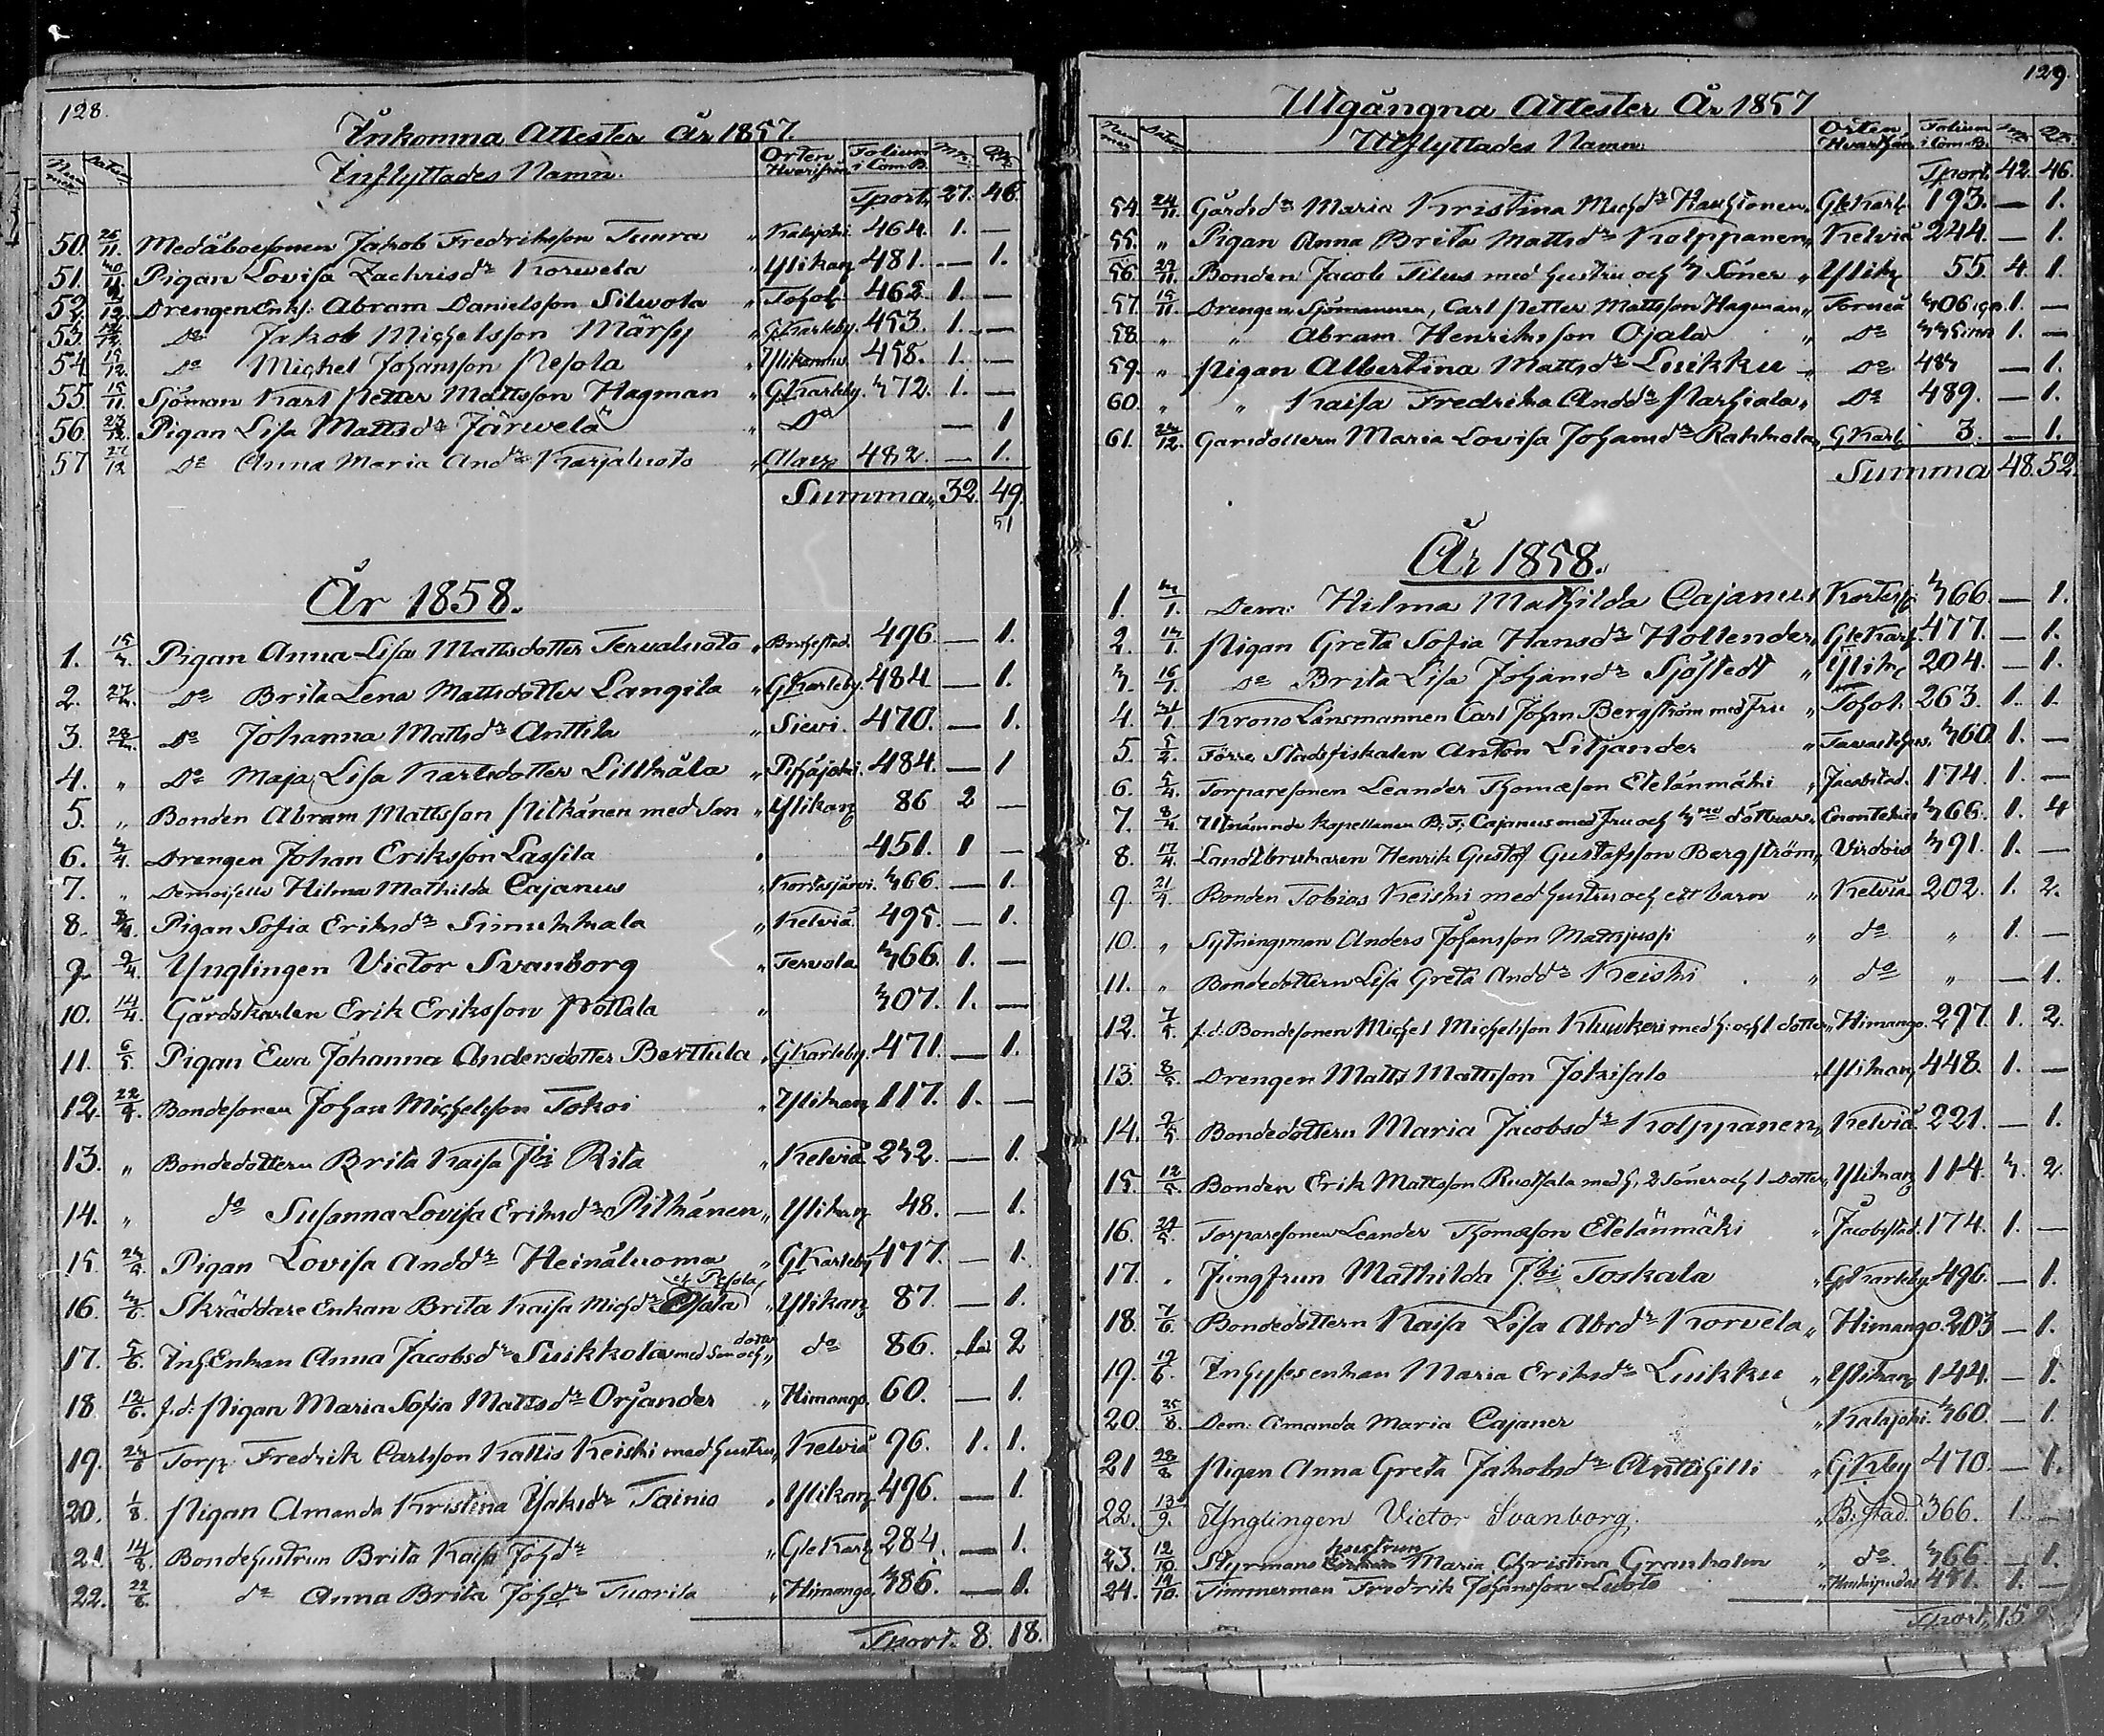 128.
Inkomna Attester År 1857
Nummer Datum Inflyttades Namn. Orten Hvarifrån Folium i Com.B. Mk. Qk.
Tport. 27. 46.
50. 26/11. Medåboesonen Jakob Fredriksson Tuura " Kalajoki. 464. 1. —
51. 30/11 Pigan Lovisa Zachrisdr Korwela " Ylikan 481. — 1.
52. /12. Drengen Enkl. Abram Danielsson Silwola " Tohol. 462. 1. —
53. /12. Do Jakob Michelsson Märsy " GKarleby. 453. 1. —
54 15/12. Do Michel Johansson Pesola " Ylikannus. 458. 1. —
55. 15/11. Sjöman Karl Petter Mattsson Hagman " GKarleby. 372. 1. —
56. 23/12. Pigan Lisa Mattsdr Järwelä " Do — 1
57 27/12 Do Anna Maria Anddr Karjaluoto " 482. — 1.
Summa, 32. 49.
51
År 1858.
1. 15/3. Pigan Anna Lisa Mattsdotter Tervaluoto " Brahestad. 496. — 1.
2. 27/3. Do Brita Lena Mattsdotter Langila " GKarleby. 484 — 1.
3. 28/3. Do Johanna Mattsdr Anttila " Sievi. 470. — 1.
4. " Do Maja Lisa Karlsdotter Littkäla " Pihäjoki. 484. — 1
5. " Bonden Abram Mattsson Pitkänen med Son " Ylikan 86 2 —
6. 3/4. Drengen Johan Eriksson Lassila " 451. 1 —
7. " Demoiselle Hilma Mathilda Cajanus " Kortesjärvi. 366. — 1.
8. 8/4. Pigan Sofia Eriksdr Simukkala " Kelviå. 495. — 1.
9. 9/4. Ynglingen Victor Svanborg " Tervola 366. 1. —
10. 14/4. Gårdskarlen Erik Eriksson Pottala " 307. 1. —
11. 6/5. Pigan Ewa Johanna Andersdotter Berttula " GKarleby. 471. — 1.
12. 22/5. Bondesonen Johan Michelsson Tokoi " Ylikan 117. 1. —
13. " Bondedottern Brita Kaisa Jbi Rita " Kelviå 232. — 1.
14. " do Susanna Lovisa Eriksdr Pitkänen " Ylikan 48. — 1.
15. 23/5. Pigan Lovisa Anddr Heinäluoma " GKarleby 477. — 1.
16. 3/6. Skräddare Enkan Brita Kaisa Michdr Pesola " Ylikan 87. — 1.
17. 5/6. Inh. Enkan Anna Jacobsdr Suikkola med Son och dotter " do 86. 1 2
18 12/6. f.d. Pigan Maria Sofia Mattsdr Orjander " Himango. 60. — 1.
19. 23/6 Torp. Fredrik Carlsson Kallis Keiski med hustru " Kelviå 96. 1. 1.
20. 1/8. Pigan Amanda Kristina Isaksdr Tainio " Ylikan. 496. — 1.
21. 14/8. Bondehustrun Brita Kaisa Johdr " GleKarl 284. — 1.
22. 22/8. do Anna Brita Johdr Tuorila " Himango. 386. — 1.
Tport. 8. 18.
129.
Utgångna Attester År 1857
Nummer Datum Utflyttades Namn. Orten Hvarthän Folium i Com.B. Mk. Qk.
Tport. 42. 46.
54. 24/11. Gårdsdr Maria Kristina Michdr Hauhtonen " GleKarl. 193. — 1.
55. " Pigan Anna Brita Mattsdr Kolppanen " Kelviå 244. — 1.
56. 29/11. Bonden Jacob Tilus med hustru och 3 Söner " Ylik 55. 4. 1.
57. 15/11. Drengen, Sjömannen, Carl Petter Mattsson Hagman " Torneå 306. 1. —
58. " " Abram Henriksson Ojala " Do 1. —
59. " Pigan Albertina Mattsdr Luikku " Do 483 — 1.
60. " " Kaisa Fredrika Anddr Parhiala " Do 489. — 1.
61. 24/12. Gårdsdottern Maria Lovisa Johansdr Rahkola " GKarl 3. — 1.
Summa 48. 52.
År 1858.
1. 3/1. Dem: Hilma Mathilda Cajanus " Kortesj. 366. — 1.
2. 13/1. Pigan Greta Sofia Hansdr Hollender " GleKarl. 477. — 1.
3. 16/1. Do Brita Lisa Johansdr Sjöstedt " Ylik 204. — 1.
4. 31/1. Krono Länsmannen Carl Johan Bergström med Fru " Tohol. 263. 1. 1.
5. 5/2. Förre Stadsfiskalen Anton Liljander " Tavastehus. 360. 1. —
6. 5/4. Torparesonen Leander Thomæson Etelänmäki " Jacobstad. 174. 1. —
7. 8/4 Utnämnde Kapellanen B. F. Cajanus med Fru och 3ne döttrar " Enontekis 366. 1. 4
8. 17/4. Landtbrukaren Henrik Gustaf Gustafsson Bergström " Virdois 391. 1. —
9. 21/4 Bonden Tobias Keiski med hustru och ett barn " Kelviå. 202. 1. 2.
10. " Sytningsman Anders Johansson Mattsjussi " do " 1. —
11. " Bondedottern Lisa Greta Anddr Keiski " do " — 1.
12. 7/5. f.d. Bondesonen Michel Michelsson Kluukeri med h: och 1 dotter " Himango. 297. 1. 2.
13. 8/5. Drengen Matts Mattsson Jokisalo " Ylikan 448. 1. —
14. 9/5. Bondedottern Maria Jacobsdr Kolppanen " Kelviå 221. — 1.
15. 12/5. Bonden Erik Mattsson Ruohala med h, 2 Söner och 1 dotter " Ylikan 114. 3. 2
16. 24/5. Torparesonen Leander Thomæson Etelänmäki " Jacobstad. 174. 1. —
17. " Jungfrun Mathilda Jbi Toskala " GKarleby. 496. — 1.
18. 7/6. Bondedottern Kaisa Lisa Abrdr Korvela " Himango. 203 — 1.
19. 19/6. Inhyses enkan Maria Eriksdr Luikku " Ylikan 144. — 1.
20. 25/8. Dem: Amanda Maria Cajaner " Kalajoki. 360. — 1.
21 28/8 Pigan Anna Greta Jakobsdr Anttihilli " GKby 470. — 1.
22. 13/9. Ynglingen Victor Svanborg. " B: stad. 366. 1. —
23. 12/10. Styrmans hustrun Maria Christina Granholm " do. 366 — 1.
24. 14/10. Timmerman Fredrik Johansson Luoto " 481. 1. —
Tport. 15